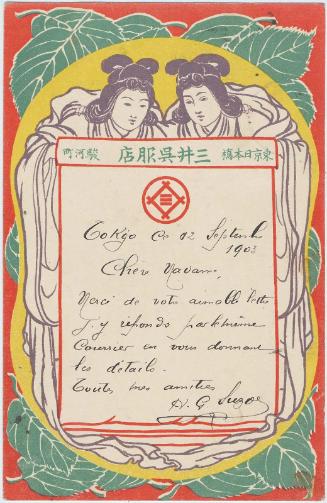 東京日本橋 三井呉服店 駿河町
三
Tokyo Ce 12 Septemb
1903
Chère Madame,
Merci de votre aimable lettre
J'y réponds par le même
Courrier en vous donnant
les détails.
Toutes mes amitiés